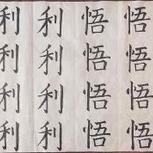 利利悟悟
利利悟悟
利利悟悟
利利悟悟